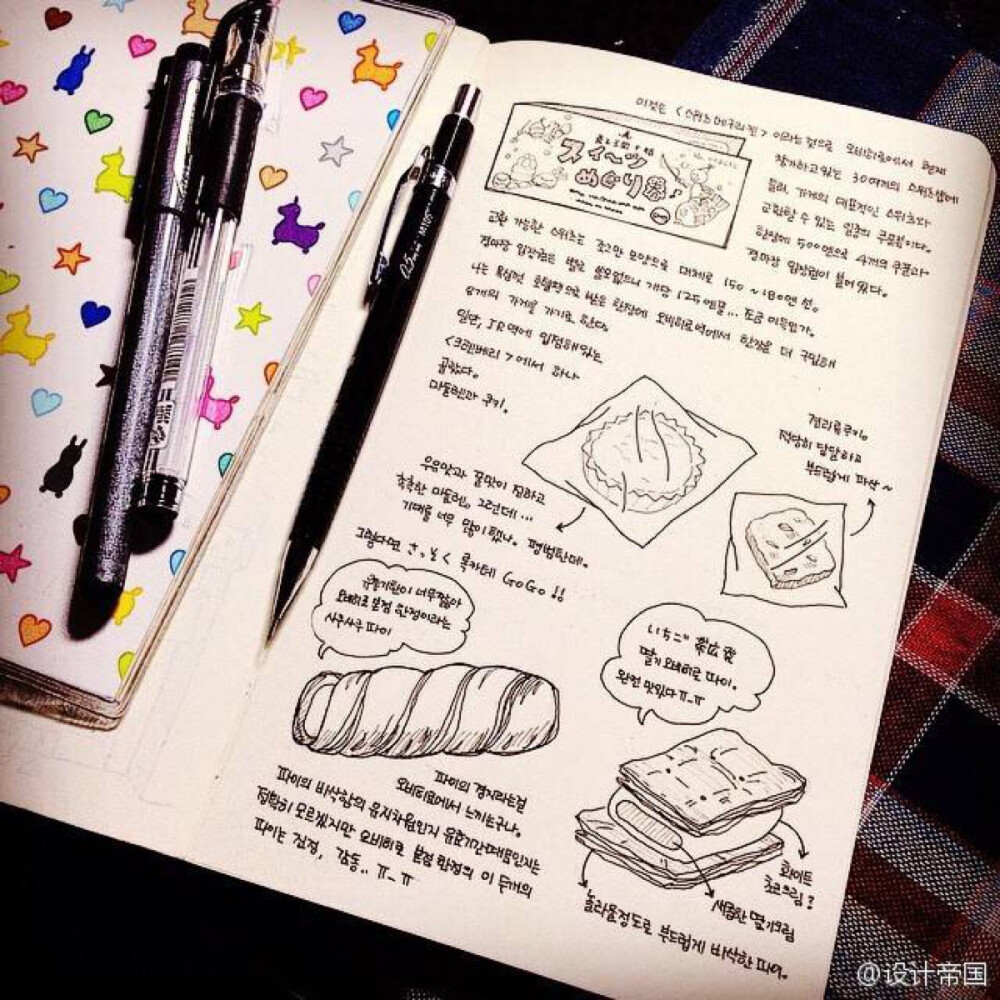 이것은 <스위츠메구리켄> 이라는 것으로 오비히로에서 현재
참가하고 있는 30여개의 스위츠샵에
들러, 가게의 대표적인 스위츠와
교환할 수 있는 일종의 쿠폰북이다.
한장에 500엔으로 4개의 쿠폰과
경마장 입장권이 붙어있다.
スイーツ
めぐり券♪
교환 가능한 스위츠는 조그만 모양으로 대체로 150~180엔 선.
경마장 입장권은 별로 쓸모없으니 개당 125엔꼴... 조금 이득인가.
나는 욕심껏 호텔팩으로 받은 한장에 오비히로역에서 한장을 더 구입해
8개의 가게를 가기로 한다.
일단, JR역에 입점해있는
<크랜베리>에서 하나
골랐다.
마들렌과 쿠키.
견과류쿠키.
적당히 달달하고
부드럽게 파삭~
우유맛과 꿀맛이 진하고
촉촉한 마들렌. 그런데...
기대를 너무 많이 했나. 평범한데.
그렇다면 さっそく 롯카테 GoGo!!
유통기한이 너무 짧아
오비히로 본점 한정이라는
사쿠사쿠 파이
いちごの 帯広
딸기 오비히로 파이.
완전 맛있다 π_π
파이의 경지라는걸
오비히로에서 느끼는구나.
파이의 바삭함의 유지차원인지 유통기간때문인지는
정확히 모르겠지만 오비히로 본점 한정의 이 두개의
파이는 진정, 감동.. π_π
화이트
초코크림?
새콤한 딸기크림
놀라울정도로 부드럽게 바삭한 파이.
0.5mm
@设计帝国